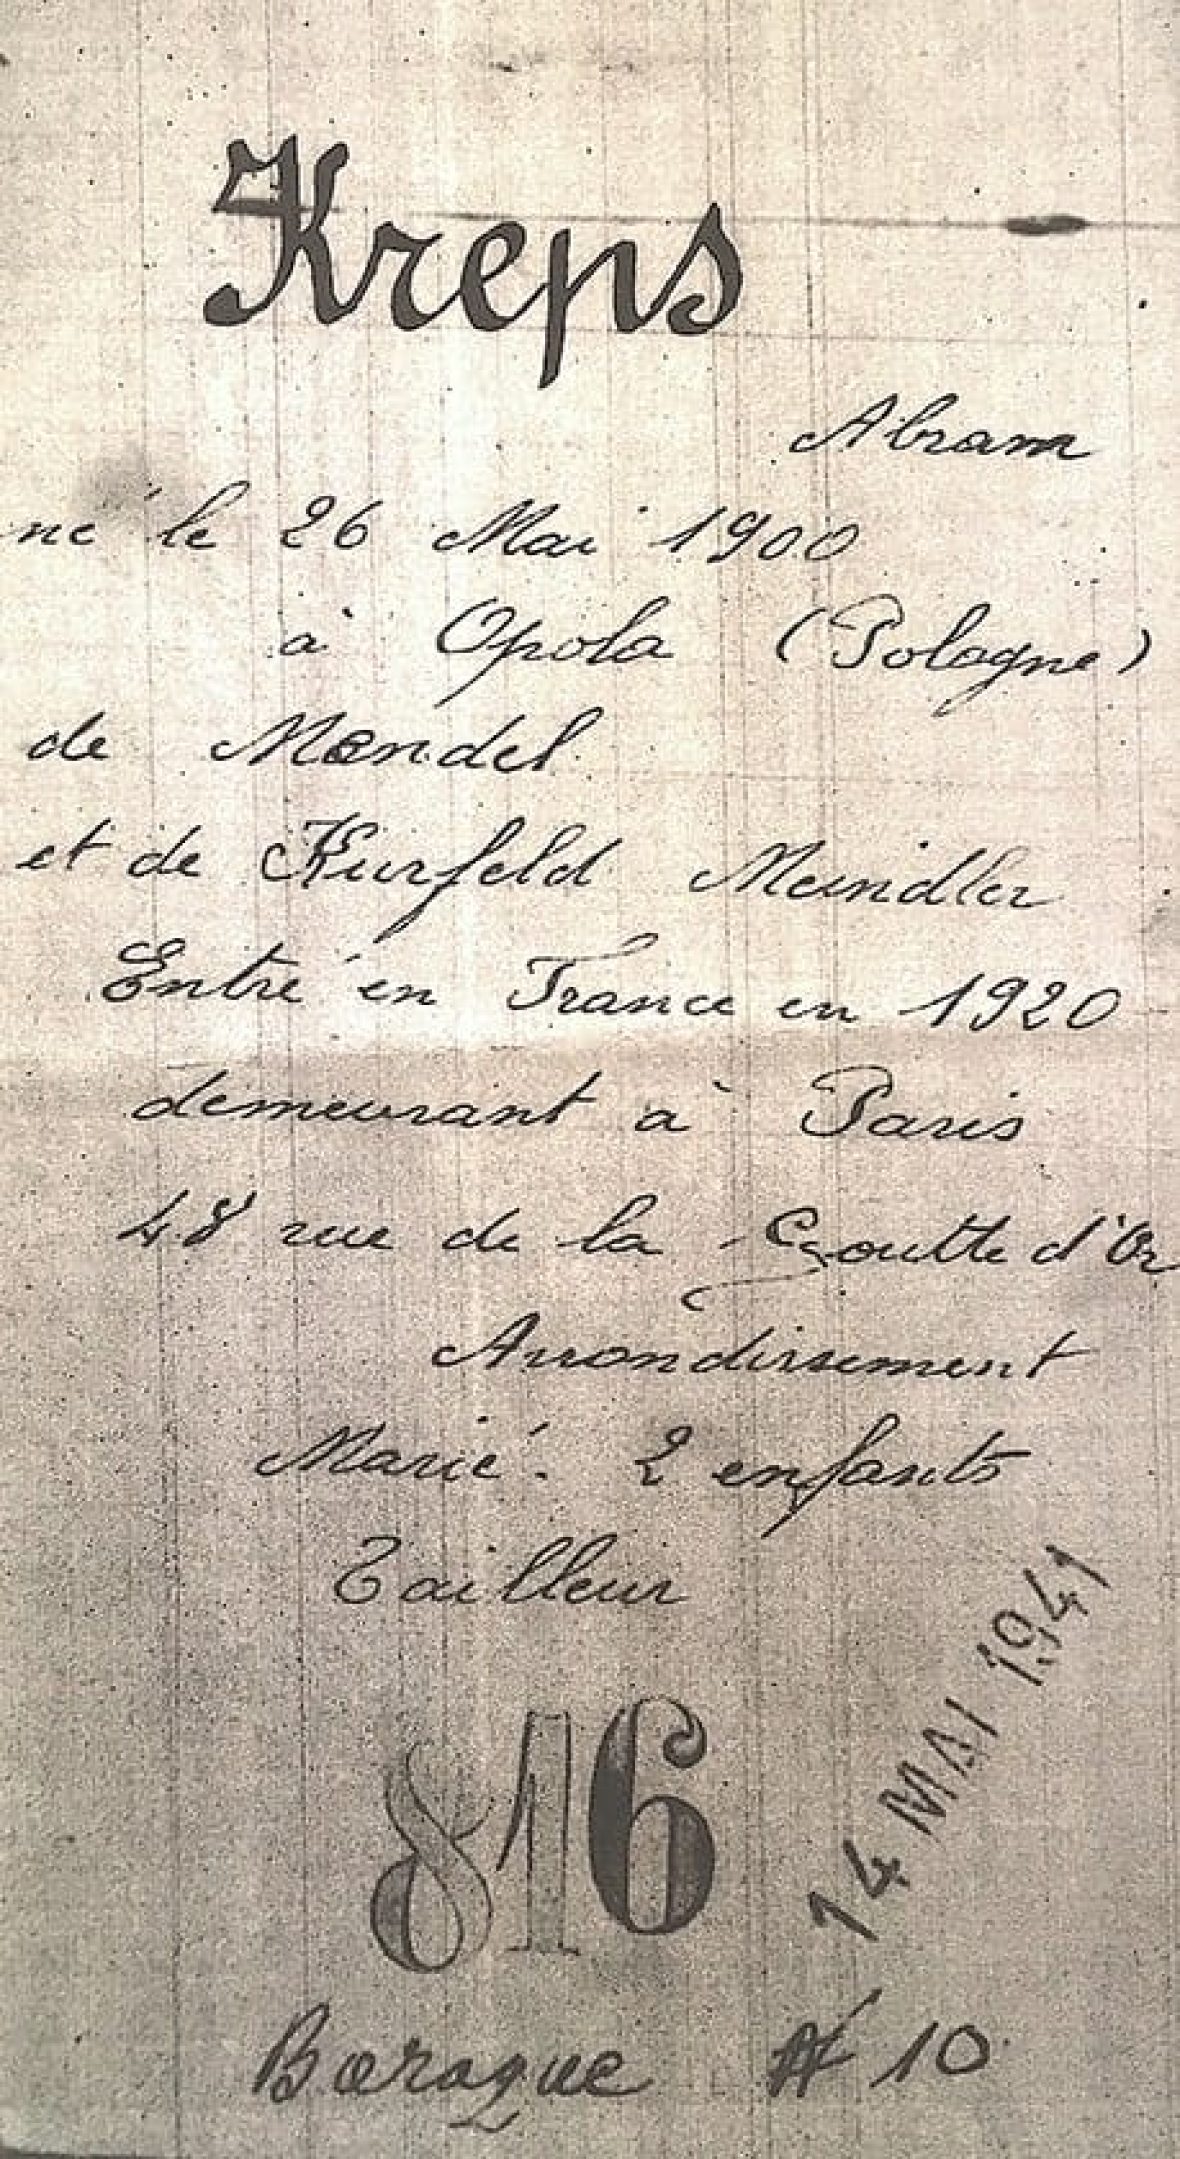 Kreps
Abram
né le 26 Mai 1900
à Opola (Pologne)
de Mendel
et de Kurfeld Meindler
Entré en France en 1920
demeurant à Paris
48 rue de la Goutte d'Or
Arrondissement
Marié. 2 enfants
Tailleur
14 MAI 1941
816
Baraque 10